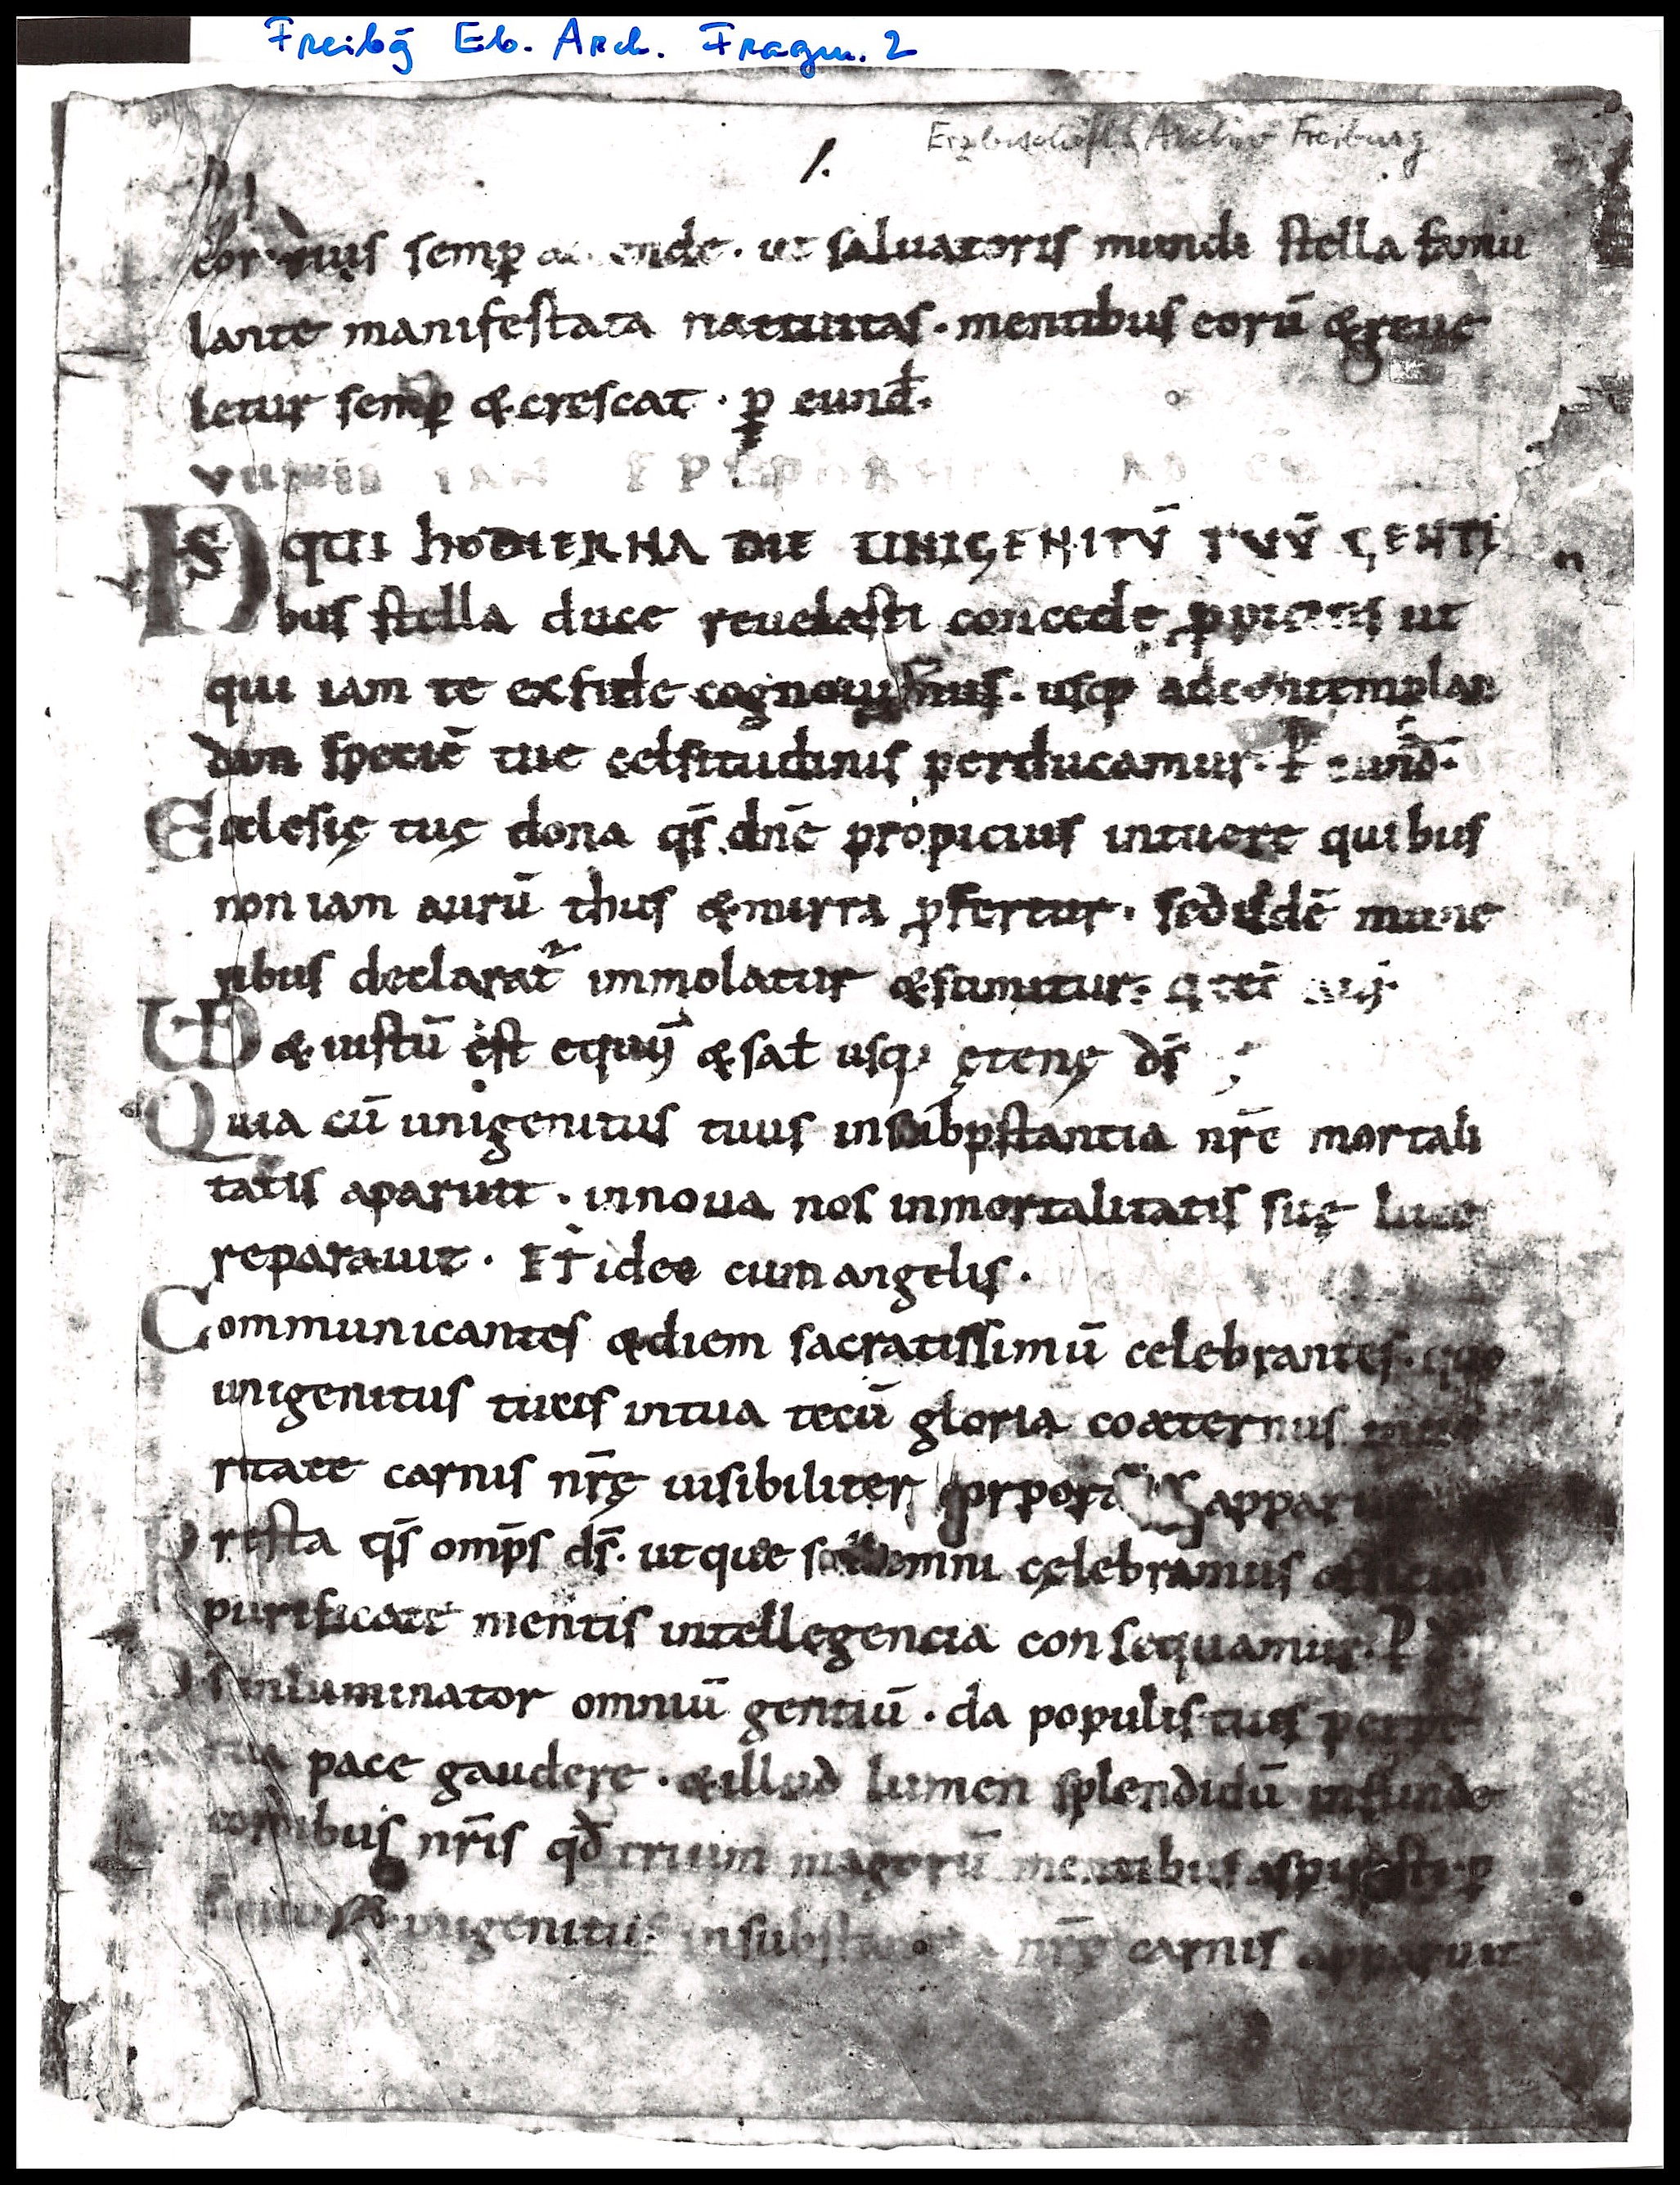 Freibg Eb. Arch. Fragm. 2
Erzbischöfl. Archiv Freiburg
1.
semꝑ ut saluatoris mundi stella famu
lante manifestata natiuitas · mentibus eorū & reue
letur semꝑ & crescat · ꝑ eund̄.
DS QUI HODIERNA DIE UNIGENITŪ TUŪ GENTI
bus stella duce reuelasti concede ut
qui iam te ex fide usq; ad contemplan
dam speciē tue celsitudinis perducamur. ꝑ eund̄.
Ecclesię tuę dona qs̄ dn̄e propicius intuere quibus
non iam aurū thus & mirra ꝓfertur · sed q̇ isdē mune
ribus declarat̄ immolatur & sumitur.
VD & iustū est equū & sal̄ usq; ęternę ds̄
Quia cū unigenitus tuus in nr̄e mortali
tatis aparuit · in noua nos inmortalitatis suę luce
reparauit · ET ideo cum angelis ·
Communicantes & diem sacratissimū celebrantes · quo
unigenitus tuus in tua tecū gloria coæternus
ritate carnis nr̄ę uisibiliter
Presta qs̄ omp̄s ds̄. ut que sollemni cęlebramus officio
purificate mentis intellegencia consequamur. ꝑ
Ds inluminator omniū gentiū · da populis tuis perpe
tua pace gaudere · & illud lumen splendidū infunde
cordibus nr̄is qd̄ trium magorū mentibus aspirasti. ꝑ
unigenitus in substantia nr̄ę carnis apparuit